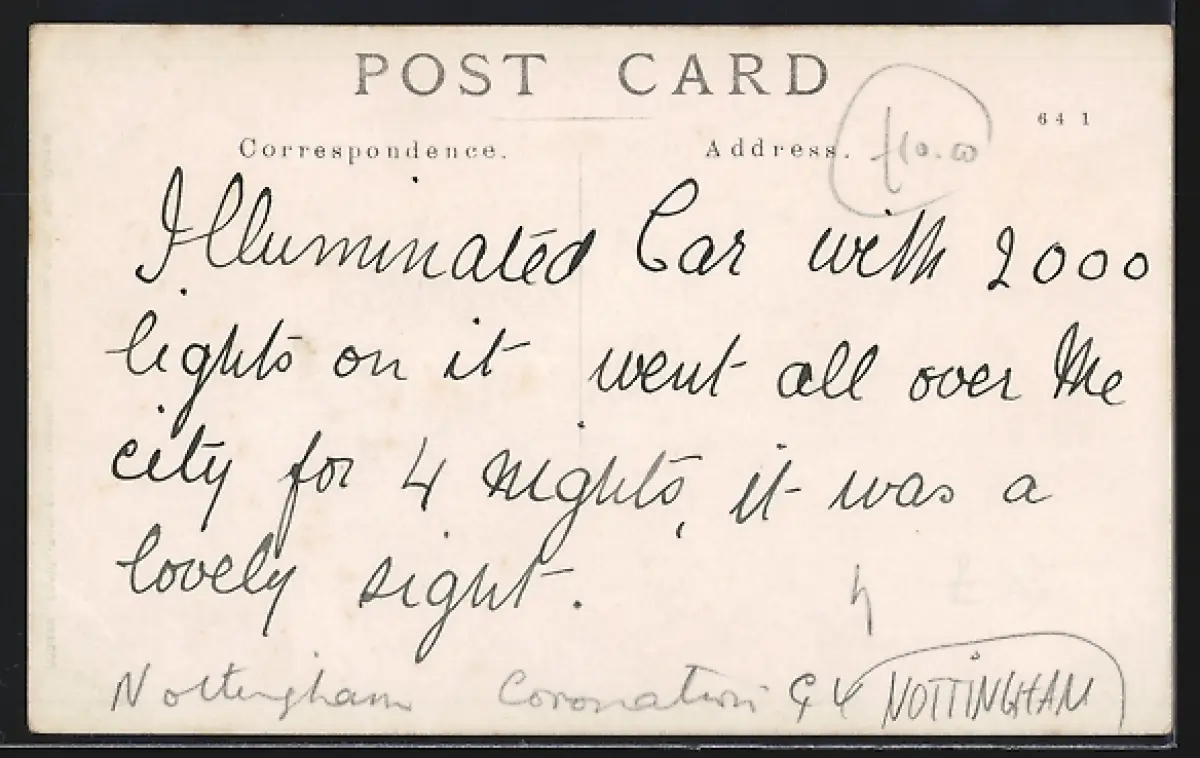 POST CARD
64 1
Correspondence.
Address.
£10.00
Illuminated Car with 2000
lights on it went all over the
city for 4 nights, it was a
lovely sight.
Nottingham Coronation G V NOTTINGHAM